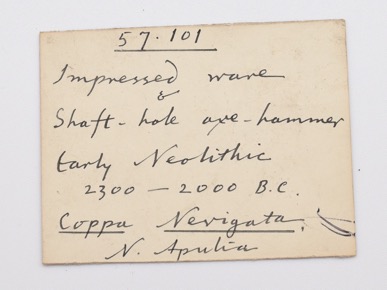 57.101
Impressed ware
&
Shaft-hole axe-hammer
Early Neolithic
2300 — 2000 B.C.
Coppa Nevigata.
N. Apulia